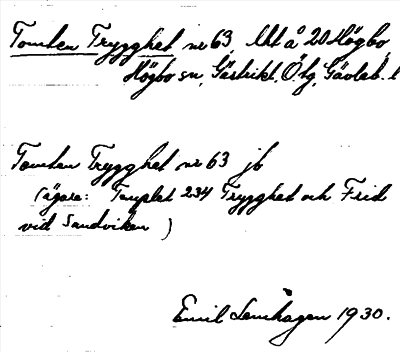 Tomten Trygghet nr 63, lht å 20 Högbo,
Högbo sn, Gästrikl. Ötg, Gävleb. l
Tomten Trygghet nr 63 jb
(ägare: Templet 234 Trygghet och Frid
vid Sandviken )
Emil Lemhagen 1930.